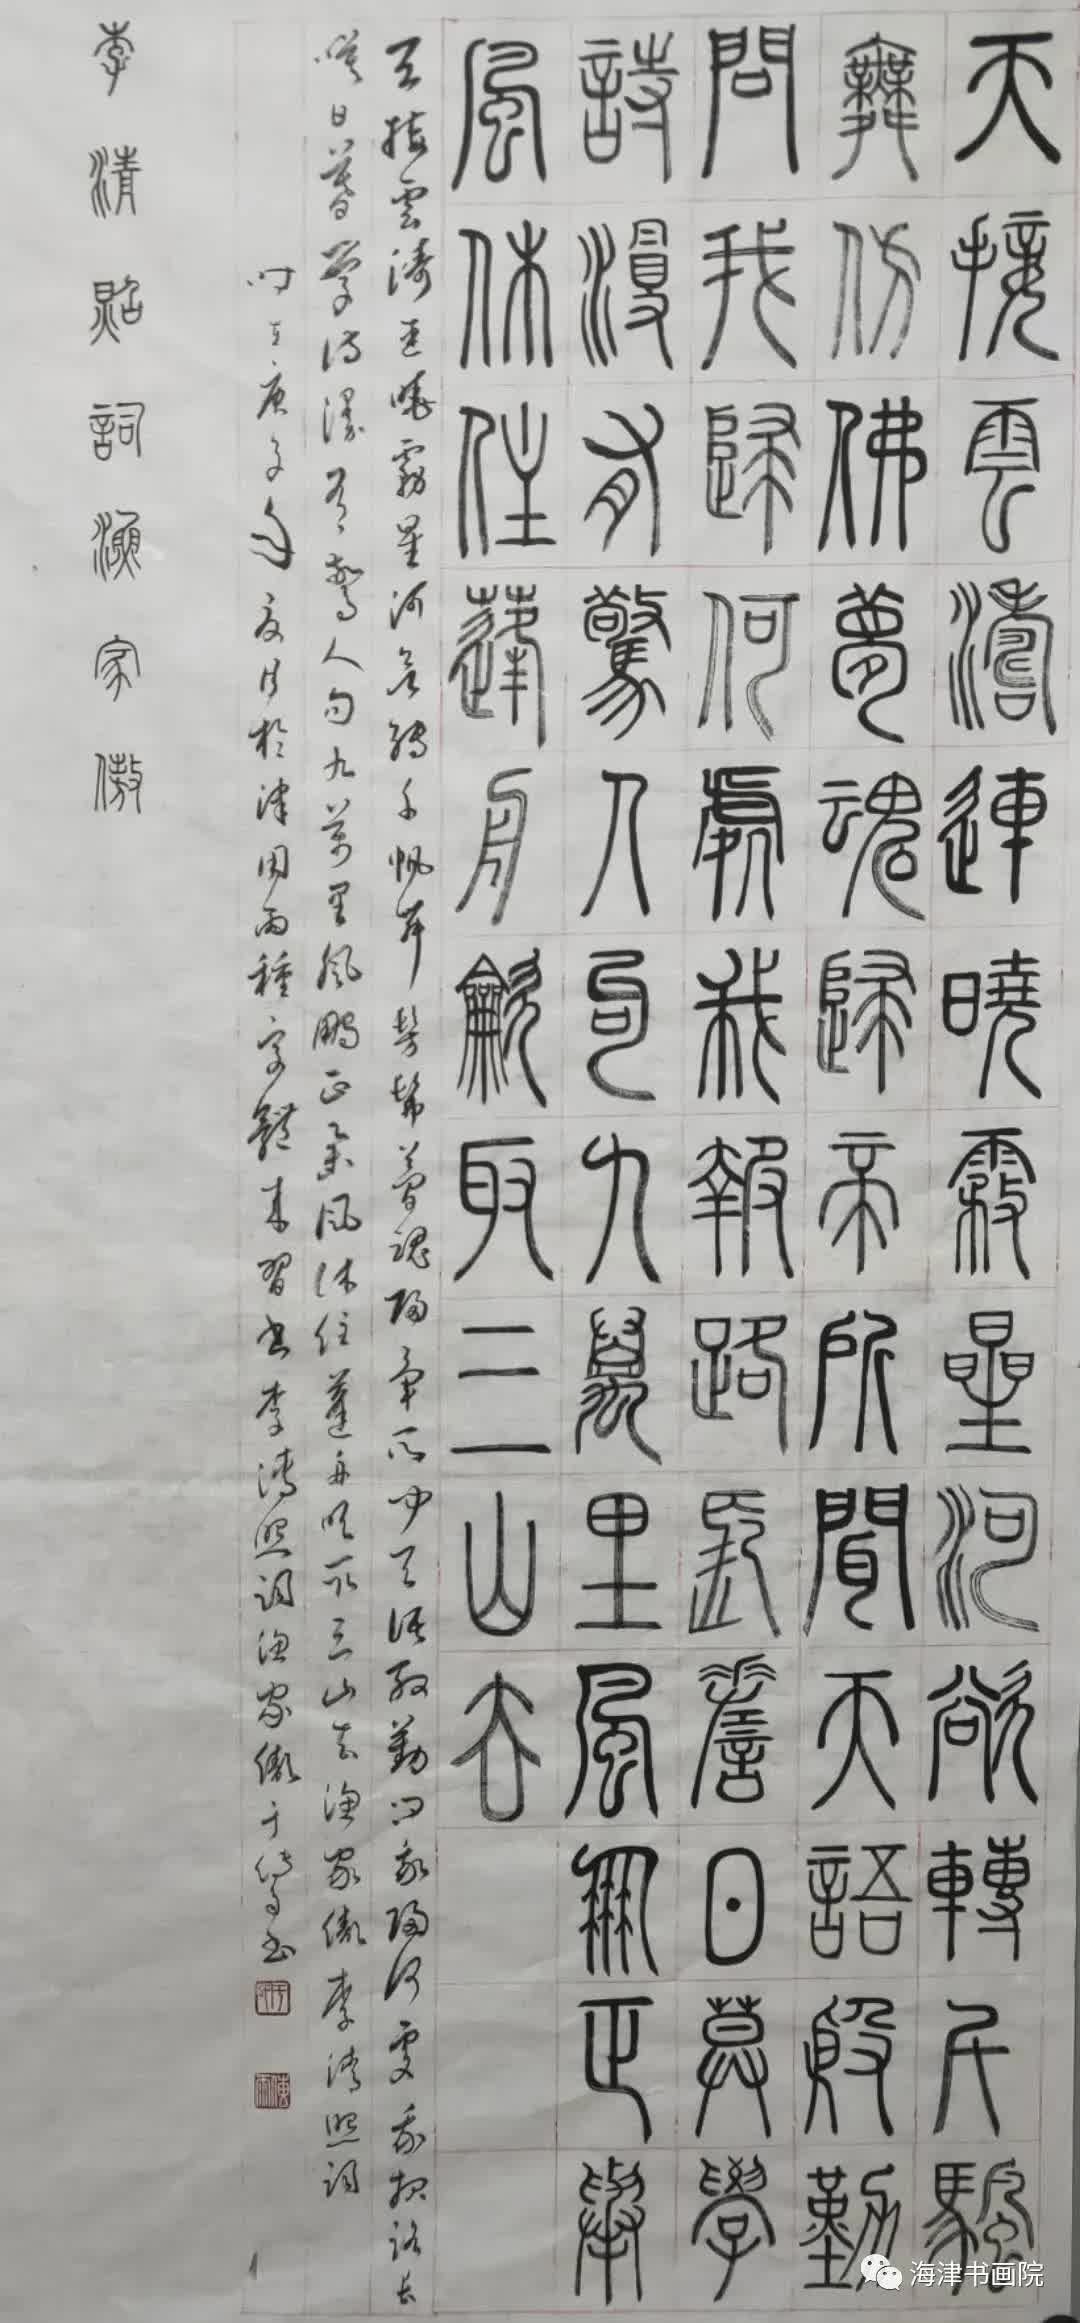 天接雲濤連曉霧星河欲轉千颿
舞仿佛夢魂歸帝所聞天語殷勤
問我歸何處我報路長嗟日暮學
詩漫有驚人句九萬里風鵬正舉
風休住蓬舟龡取三山去
天接雲濤連曉霧星河欲轉千帆舞髣髴夢魂歸帝所聞天語殷勤問我歸何處我報路長
嗟日暮學詩漫有驚人句九萬里風鵬正舉風休住蓬舟吹取三山去漁家傲李清照詞
時在庚子年夏月於津用兩種字體來習書李清照詞漁家傲于書
李清照詞漁家傲
海津书画院